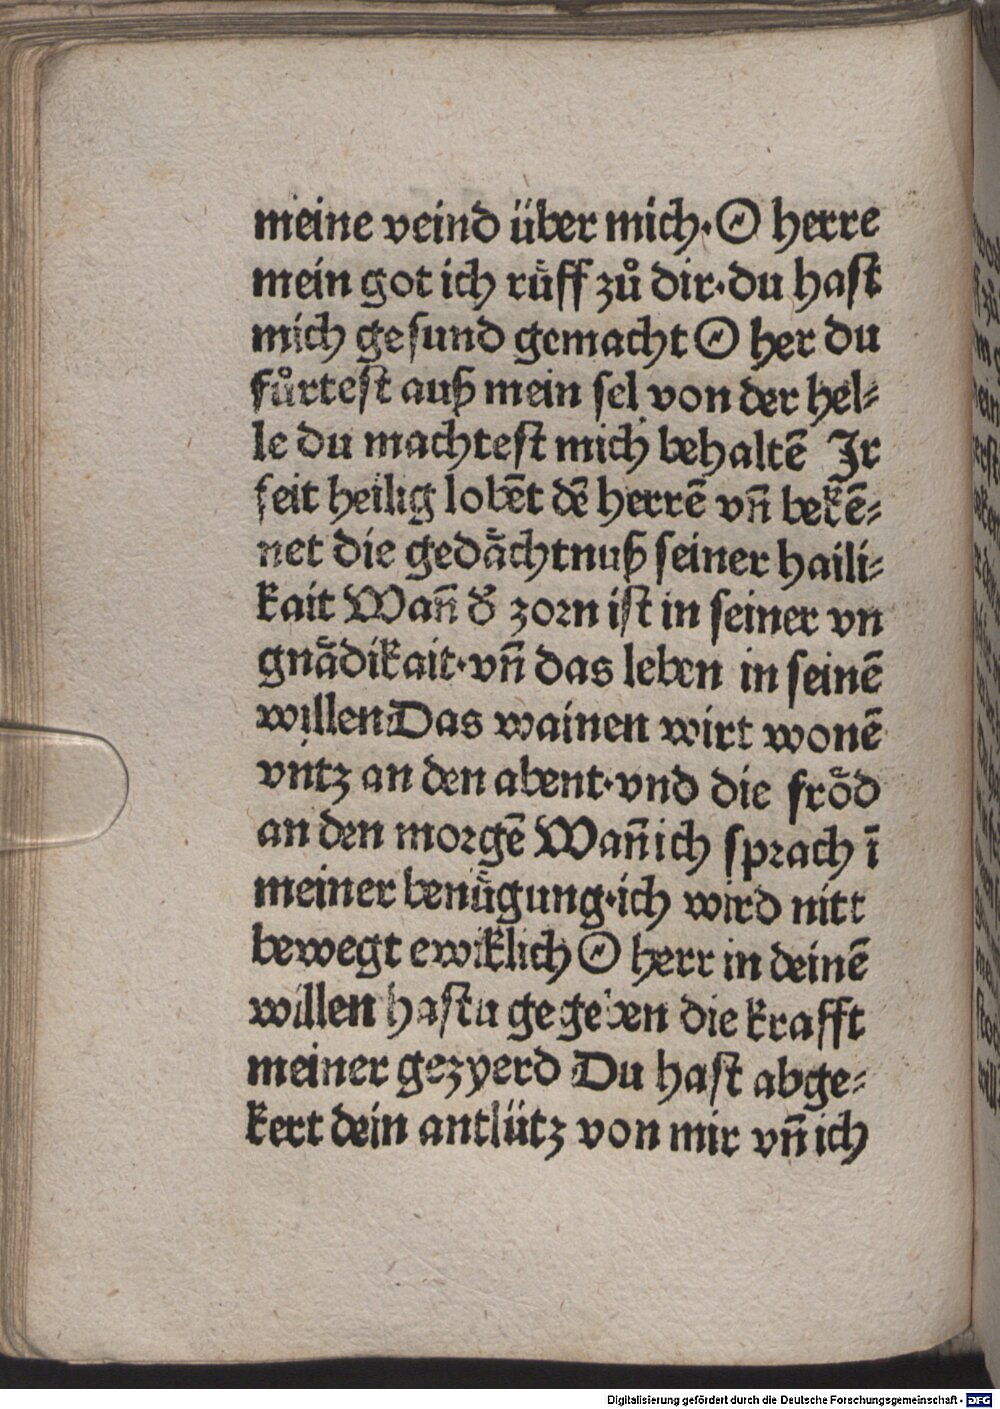 meine veind über mich·O herre
mein got ich rüff zů dir·du hast
mich gesund gemacht O her du
fůrtest auß mein sel von der hel⸗
le du machtest mich behaltē Jr
seit heilig lobēt dē herrē vn̄ bekē⸗
net die gedåchtnuß seiner haili⸗
kait Wan̄ d̕ zorn ist in seiner vn
gnådikait·vn̄ das leben in seinē
willen Das wainen wirt wonē
vntz an den abent·vnd die frőd
an den morgē Wan̄ ich sprach ī
meiner benügung·ich wird nitt
bewegt ewiklich O herr in deinē
willen hastu gegeben die krafft
meiner gezyerd Du hast abge⸗
kert dein antlütz von mir vn̄ ich
Digitalisierung gefördert durch die Deutsche Forschungsgemeinschaft - DFG